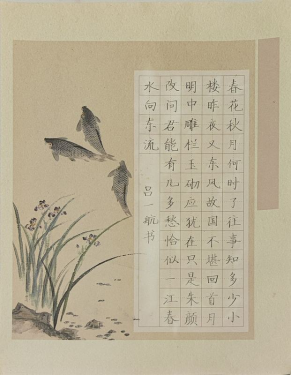 春花秋月何时了往事知多少小
楼昨夜又东风故国不堪回首月
明中雕栏玉砌应犹在只是朱颜
改问君能有几多愁恰似一江春
水向东流
吕一航书